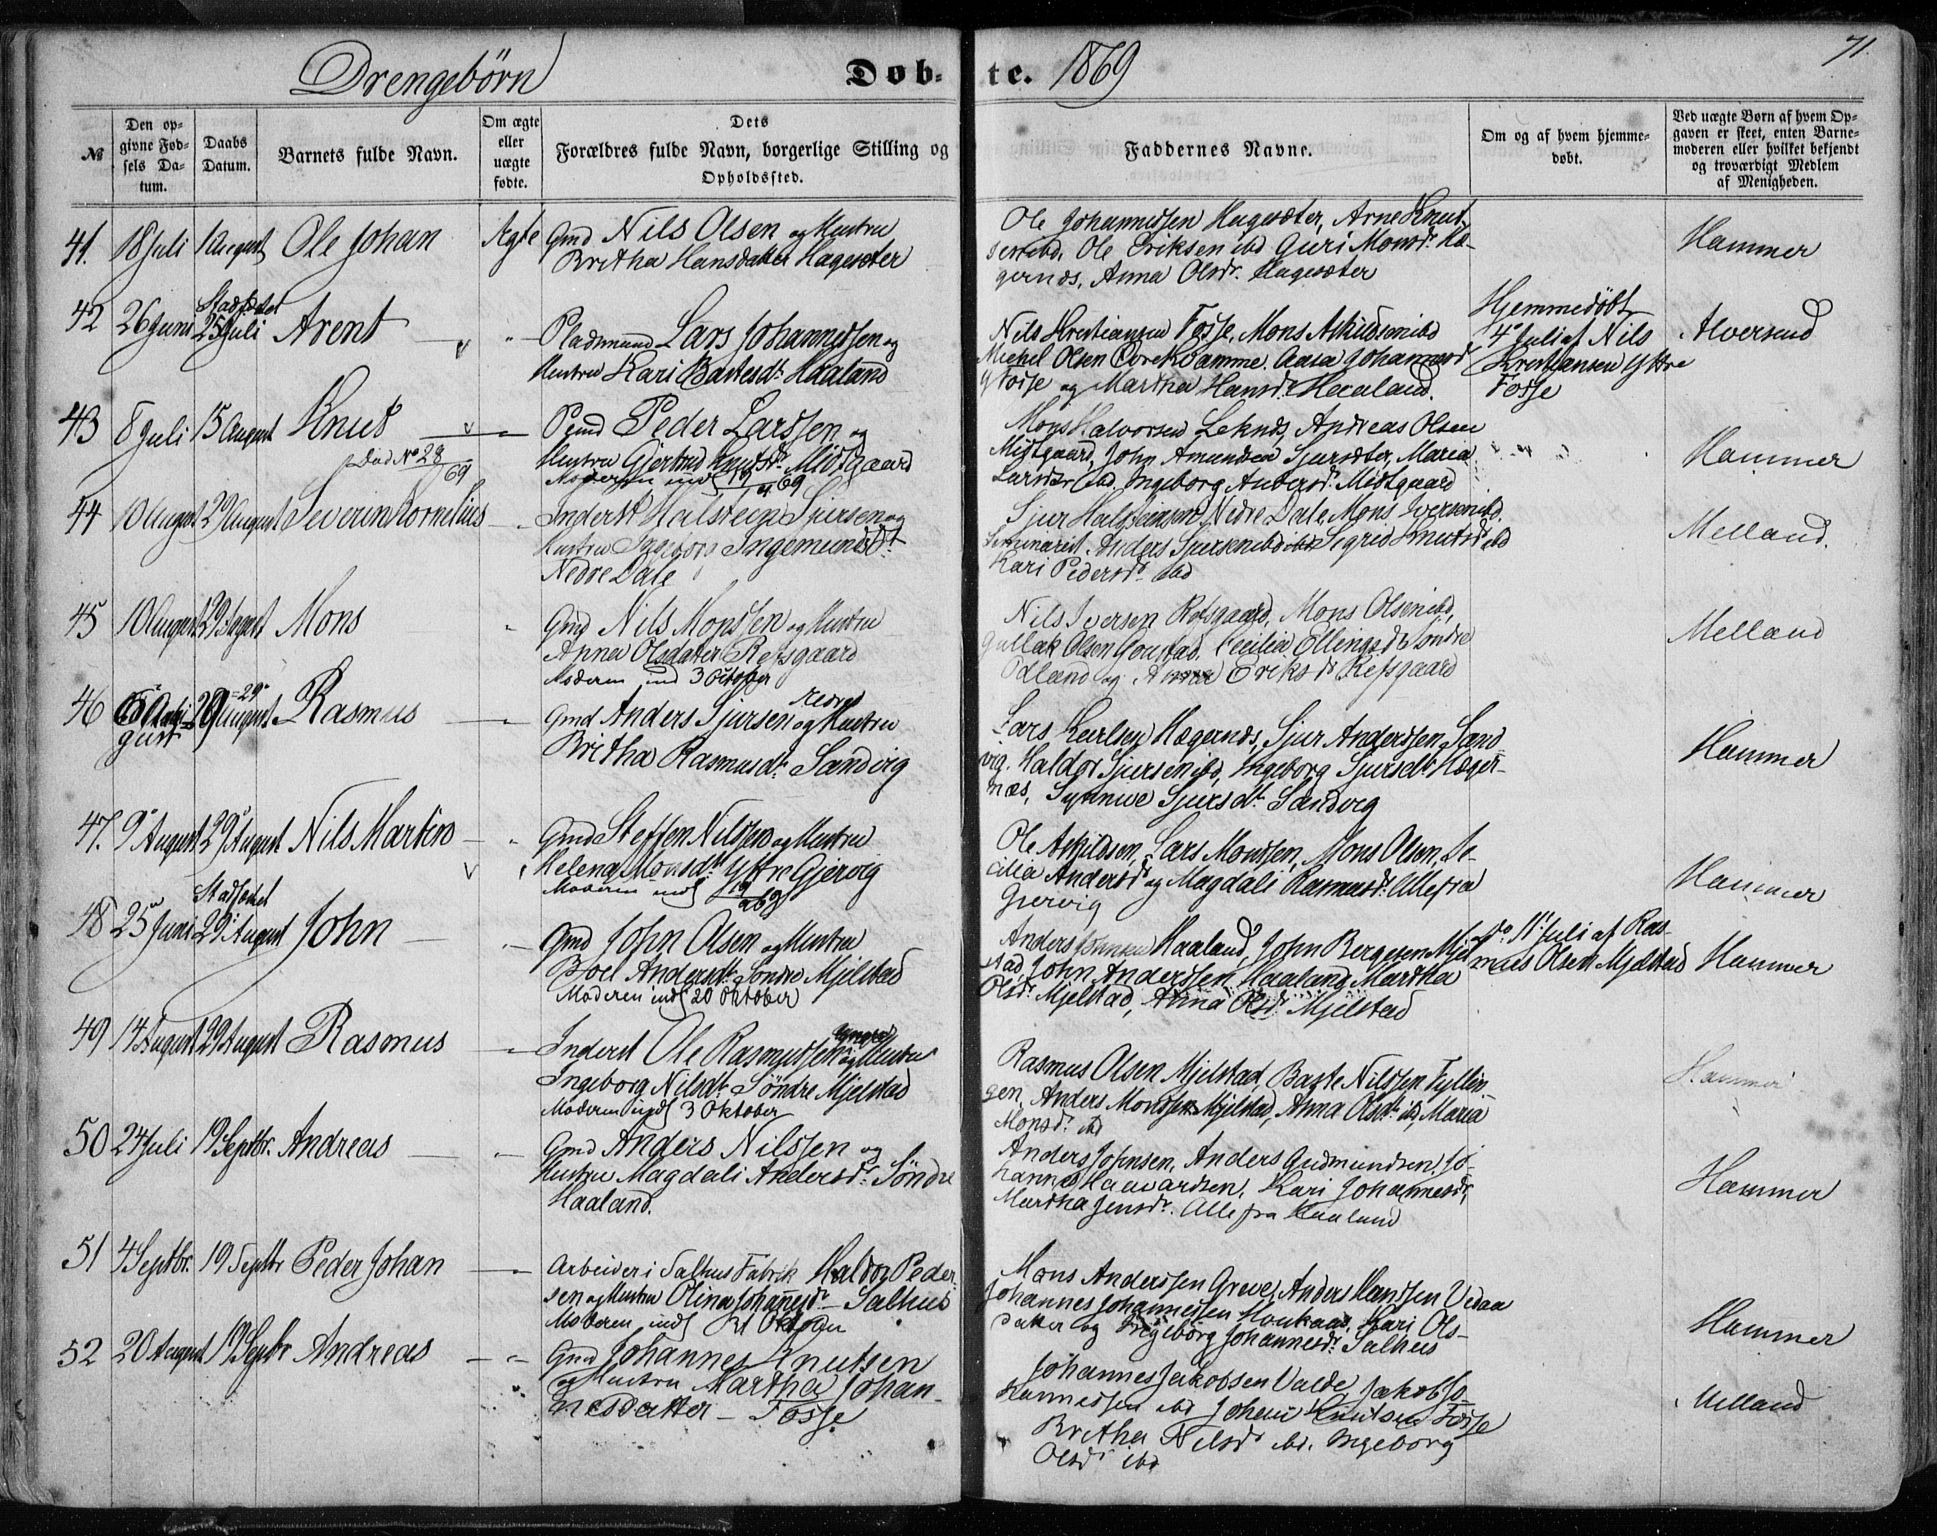 Drengebørn
Døb-te. 1869
71.
№
Den opgivne Fødsels Datum.
Daabs Datum.
Barnets fulde Navn.
Om ægte eller uægte fødte.
Dets Forældres fulde Navn, borgerlige Stilling og Opholdssted.
Faddernes Navne.
Om og af hvem hjemmedøbt.
Ved uægte Børn af hvem Opgaven er skeet, enten Barnemoderen eller hvilket bekjendt og troværdigt Medlem af Menigheden.
41. 18 Juli 1 August Ole Johan Ægte Gmd Nils Olsen og Hustru
Britha Hansdatter Hagesæter
Ole Johannessen Hagesæter, Arne Knut-
sen ibd, Ole Eriksen ibd Guri Monsdr. Hæ-
gernæs, Anna Olsdr. Hagesæter
Hammer
42 26 Juni Stadfæstet 25 Juli Arent
Pladsmand Lars Johannessen og
Hustru Kari Bastesdr. Haaland
Nils Kristiansen Fosse, Mons Askildsen ibd
Michel Olsen Dovrekvamme. Aasa Johannesd
Y Fosse og Martha Hansdr. Haaland.
Hjemmedøbt
4 Juli af Nils
Kristiansen Yttre
Fosse
Alversund
43 8 Juli 15 August Knud
Død No 28/69
Pgmd Peder Larssen og
Hustru Gjertrud Knutsdr. Midtgaard
Moderen indl 19/9 69
Mons Halvorsen Leknes, Andreas Olsen
Midtgaard, John Amundsen Sjursæter, Maria
Larsdr ibd. Ingeborg Andersdr. Midtgaard
Hammer
44 10 August 29 August Severin Kornelius
Inderst Halstein Sjursen og
Hustru Ingeborg Ingemundsdr.
Nedre Dale
Sjur Halsteinsen Nedre Dale, Mons Iversen ibd.
Seminarist Anders Sjursen ibd Sigrid Knutsdr ibd
Kari Pedersdr. ibd
Melland.
45 10 August 29 August Mons
Gmd Nils Monssen og Hustru
Anna Olsdatter Refsgaard
Moderen indl 3 Oktober
Nils Iversen Refsgaard, Mons Olsen ibd,
Gullak Olsen Cecilia Ellingsdr Søndre
Odland og Anna Eriksdr Refsgaard
Melland
46 6 August 29 August Rasmus
Gmd Anders Sjursen Nedre og Hustru
Britha Rasmusdr. Sandvig
Lars Karlsen Hægernæs, Sjur Anderssen Sand-
vig, Haldor Sjursen ibd, Ingeborg Sjursdr Hæger-
næs, Synneve Sjursdr. Sandvig
Hammer
47. 9 August 29 August Nils Martin
Gmd Steffen Nilssen og Hustru
Helena Monsdr. Yttre Gjervig
Moderen indl
Ole Askildsen, Lars Monssen, Mons Olsen, Se-
cilia Andersdr og Magdali Rasmusdr. Alle fra
Gjervig
Hammer
48 25 Juni Stadfæstet 29 August John
Gmd John Olsen og Hustru
Boel Andersdr. Søndre Mjelstad
Moderen indl 20 Oktober
Anders Haaland, John Bergesen Mjel-
stad, John Anderssen Haaland, Martha
Olsdr. Mjelstad, Anna Olsdr. Mjelstad
do 11 Juli af Ras-
mus Olsen Mjelstad
Hammer
49 14 August 29 August Rasmus
Inderst Ole Rasmussen og Hustru
Ingeborg Nilsdr. Søndre Mjelstad
Moderen indl 3 Oktober
Rasmus Olsen Mjelstad, Baste Nilssen Fyllin-
gen, Anders Monssen Mjelstad, Anna Olsdr. ibd, Maria
Monsdr. ibd
Hammer
50 24 Juli 19 Septbr. Andreas
Gmd Anders Nilssen og
Hustru Magdali Andersdr. Søndre
Haaland.
Anders Johnsen, Anders Gudmundsen, Jo-
hannes Haavardsen, Kari Johannesdr,
Martha Jensdr. Alle fra Haaland
Hammer
51 4 Septbr. 19 Septbr Peder Johan
Arbeider i Salhus Fabrik Haldor Peder-
sen og Hustru Olina Johannesdr. Salhus
Moderen indl 31 Oktober
Mons Anderssen Greve, Anders Hanssen Vedaa
Johannes Johannessen Haukaas, Kari Ols-
datter og Ingeborg Johannesdr. Salhus
Hammer
52 20 August 19 Septbr Andreas
Gmd Johannes Knutsen
og Hustru Martha Johan-
nesdatter - Fosse
Johannes Jakobsen Valde, Jakob Jo-
hannessen ibd Johan Knutsen Fosse
Britha Nilsdr ibd. Ingeborg
Olsdr ibd
Melland